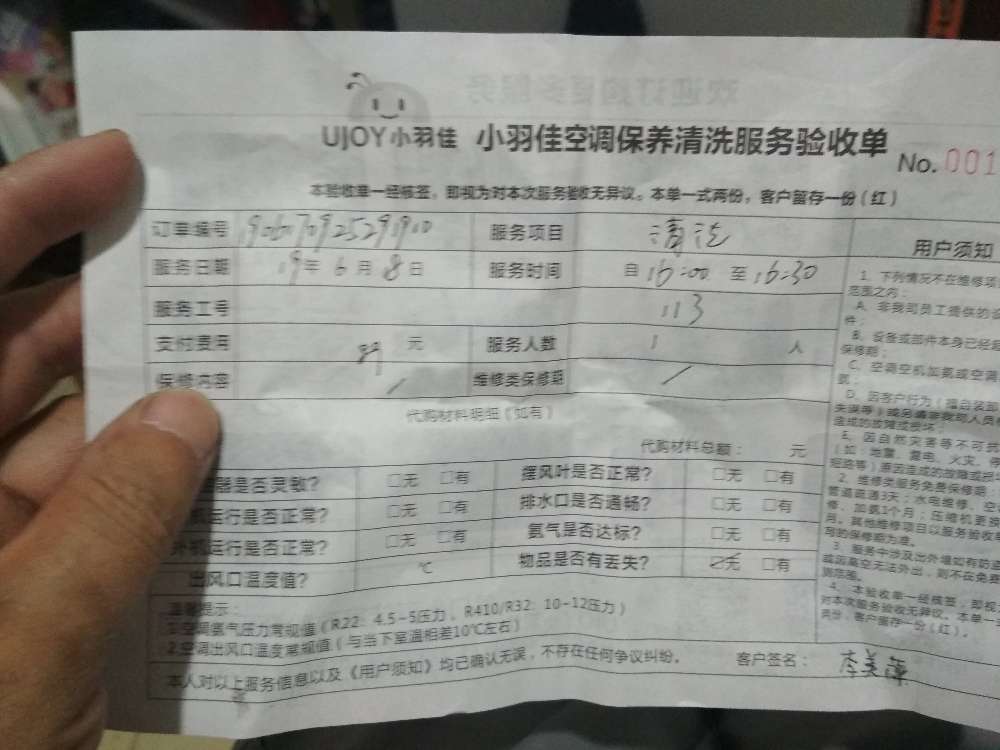 UJOY小羽佳 小羽佳空调保养清洗服务验收单 No. 001
本验收单一经核签，即视为对本次服务验收无异议。本单一式两份，客户留存一份（红）
订单编号 服务项目 清洗 用户须知
服务日期 19年6月8日 服务时间 自16:00 至16:30
服务工号 113
支付费用 89 元 服务人数 1 人
保修内容 / 维修类保修期 /
代购材料明细（如有）
代购材料总额： 元
器是否灵敏？ □无 □有 摆风叶是否正常？ □无 □有
机运行是否正常？ □无 □有 排水口是否通畅？ □无 □有
外机运行是否正常？ □无 □有 氨气是否达标？ □无 □有
出风口温度值？ ℃ 物品是否有丢失？ ☑无 □有
温馨提示：
1.空调氨气压力常规值（R22：4.5-5压力，R410/R32：10-12压力）
2.空调出风口温度常规值（与当下室温相差10℃左右）
本人对以上服务信息以及《用户须知》均已确认无误，不存在任何争议纠纷。 客户签名：
1、下列情况不在维修项
范围之内：
A、非我司员工提供的设
件；
B、设备或部件本身已经超
保修期；
C、空调空机加氨或空调
氨；
D、因客户行为（擅自装卸
造成的故障或损坏；
E、因自然灾害等不可抗
（如：地震、雷电、火灾、
短路等）原因造成的故障或损
2、维修类服务免费保修期：
管道疏通3天；水电维修、空
修、加氨1个月；压缩机更换
月。其他维修项目以服务验收单
写的保修期为准。
3、服务中涉及出外墙如有防盗
或因高空无法外出，则不在免
4、本验收单一经核签，即视
对本次服务验收无异议。本单一式
两份，客户留存一份（红）。